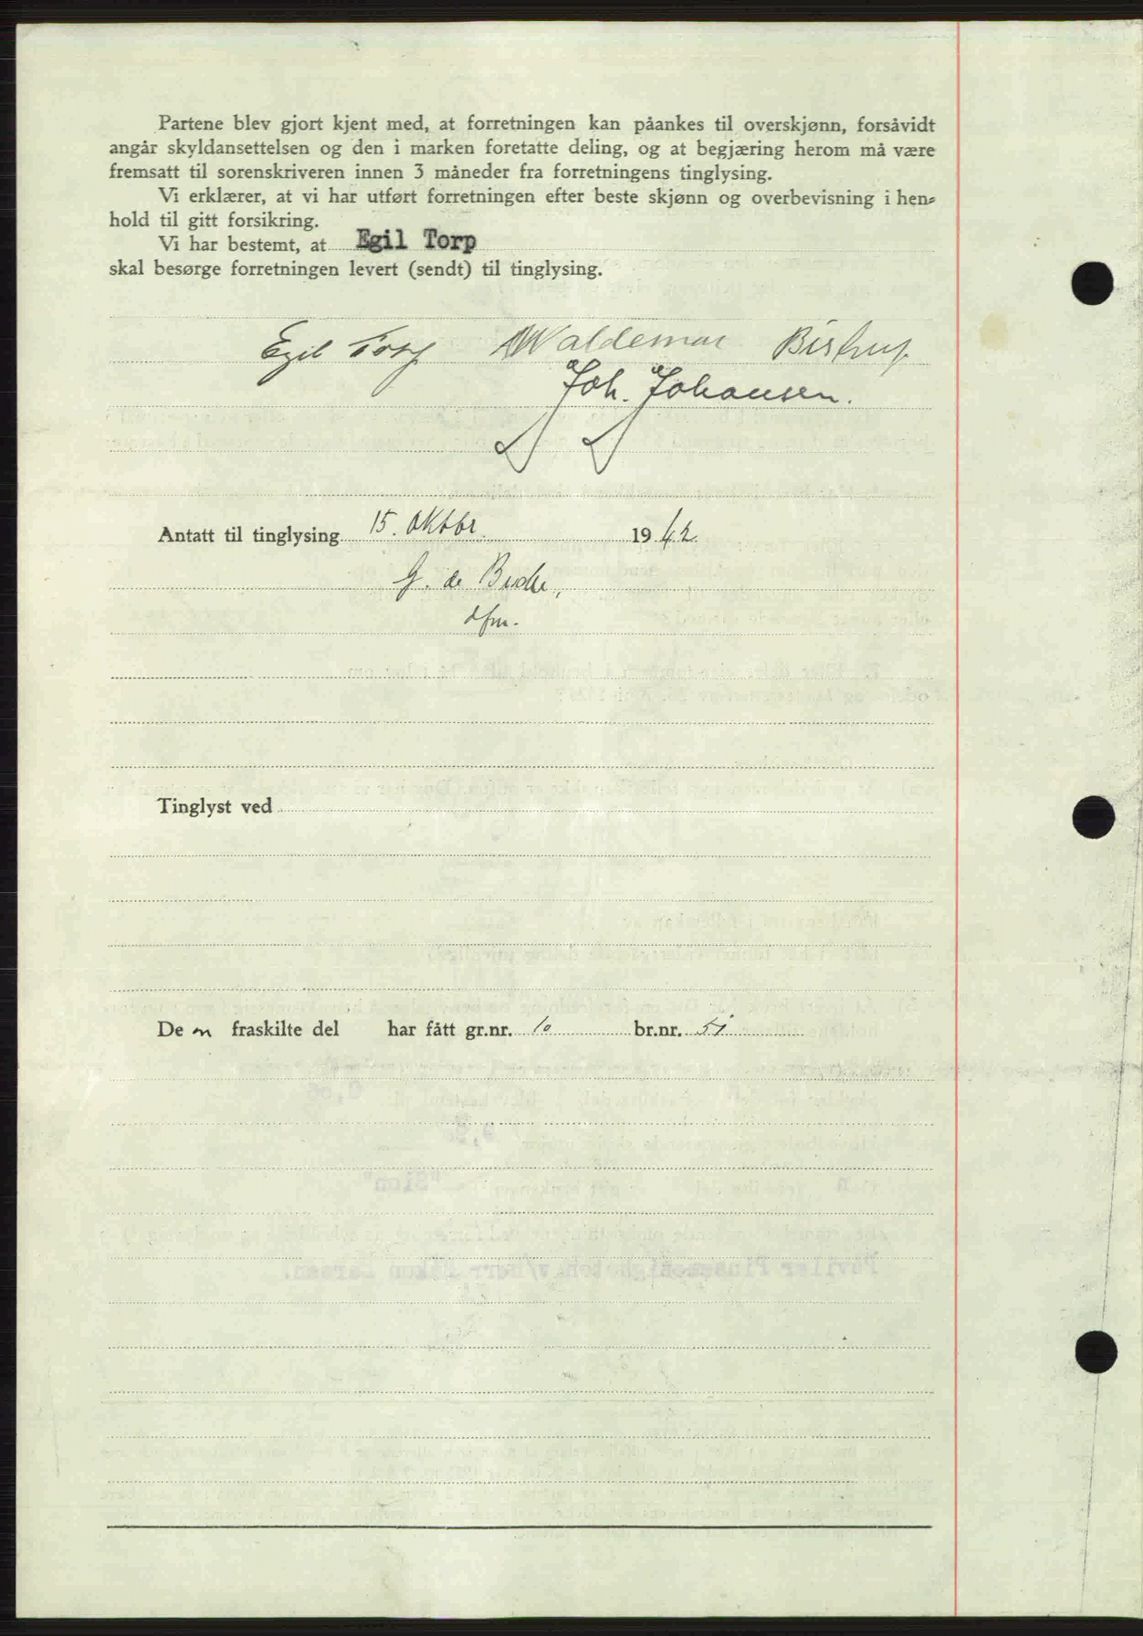 Partene blev gjort kjent med, at forretningen kan påankes til overskjønn, forsåvidt
angår skyldansettelsen og den i marken foretatte deling, og at begjæring herom må være
fremsatt til sorenskriveren innen 3 måneder fra forretningens tinglysing.
Vi erklærer, at vi har utført forretningen efter beste skjønn og overbevisning i hen-
hold til gitt forsikring.
Vi har bestemt, at Egil Torp
skal besørge forretningen levert (sendt) til tinglysing.
Egil Torp Waldemar Bistrup
Joh. Johansen.
Antatt til tinglysing 15. oktbr. 1942
G. de
dfm.
Tinglyst ved
De n fraskilte del har fått gr.nr. 10 br.nr. 51